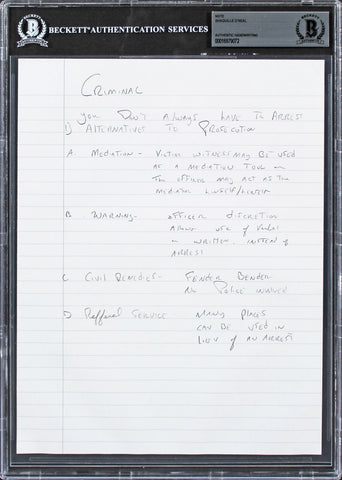 BECKETT AUTHENTICATION SERVICES
NOTE
SHAQUILLE O'NEAL
AUTHENTIC HANDWRITING
BECKETT
BECKETT
CRIMINAL
you Don't Always have to Arrest
1) Alternatives to Prosecution
A. Mediation - Victim witness may be used
as a mediation tool or
the officer may act as the
mediator himself/herself
B. Warning - officer discretion
allows use of verbal
or written, instead of
arrest
C. Civil Remedies - Fender Bender
no Police involved
D Refferal Service - Many places
can be used in
lieu of an arrest